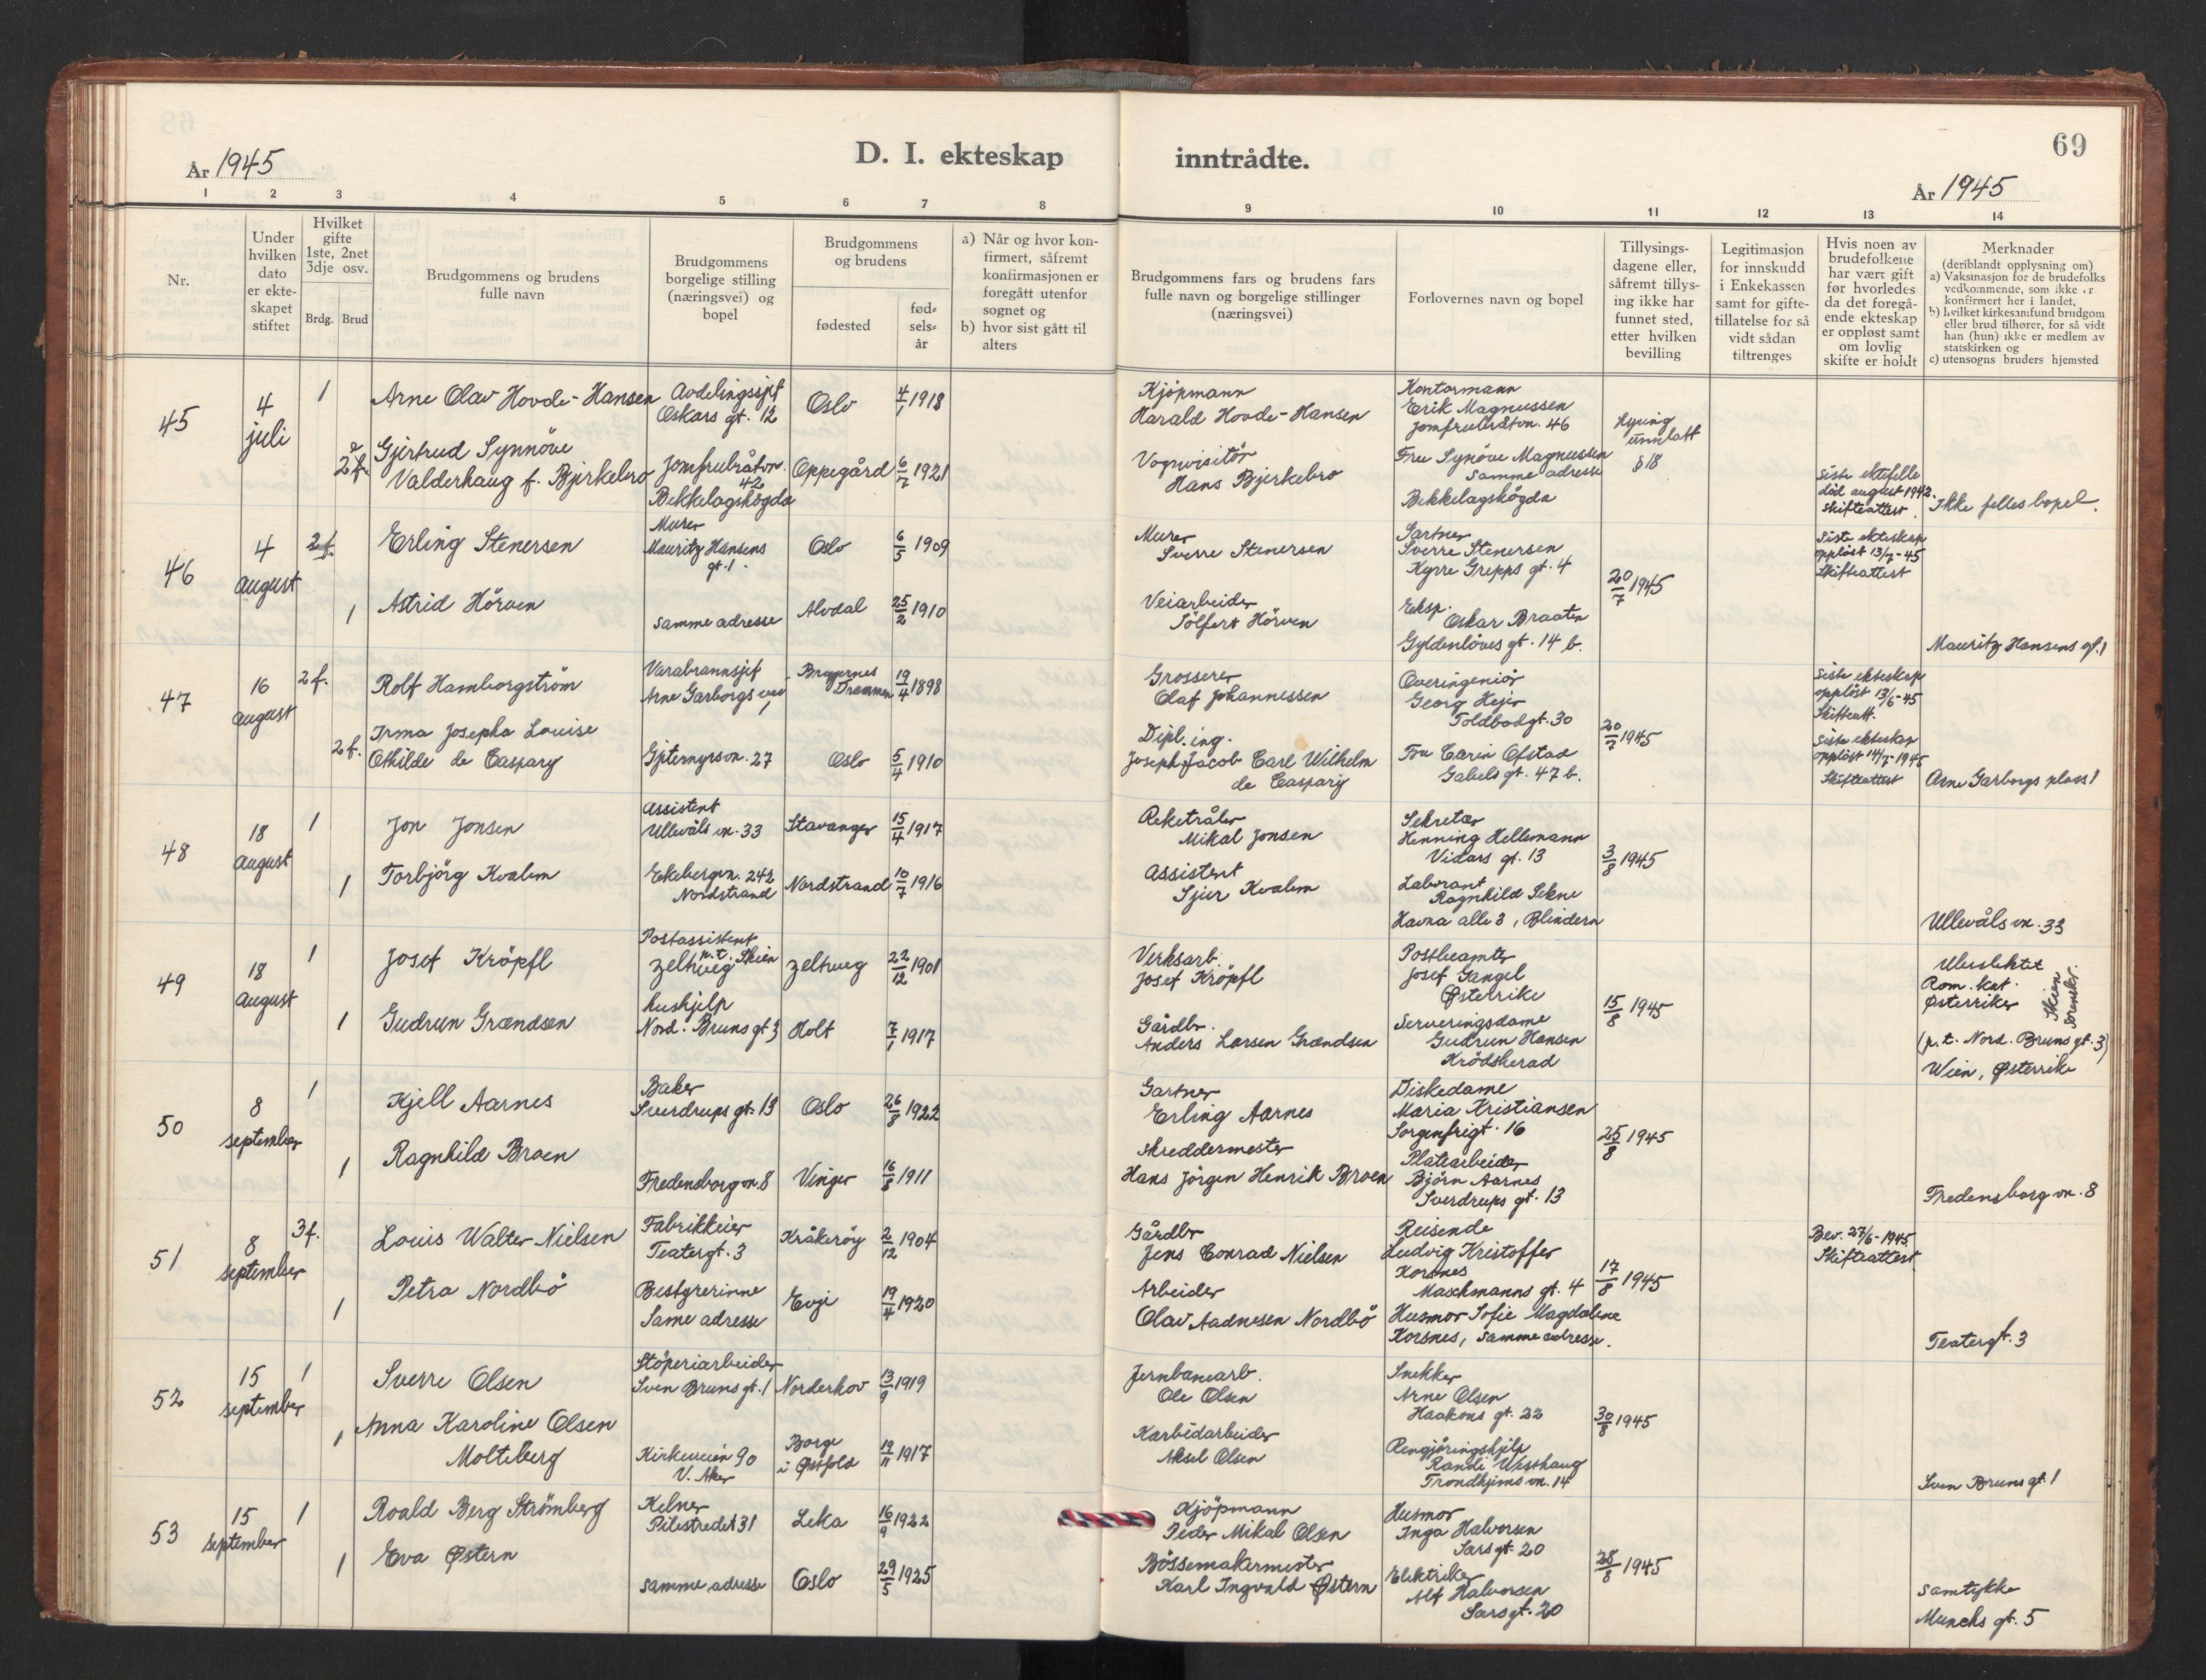 D. I. ekteskap inntrådte.
69
År 1945
År 1945
1 2 3 4 5 6 7 8 9 10 11 12 13 14
Nr.
Under hvilken dato er ekte-skapet stiftet
Hvilket gifte 1ste, 2net 3dje osv.
Brdg. Brud
Brudgommens og brudens fulle navn
Brudgommens borgelige stilling (næringsvei) og bopel
Brudgommens og brudens
fødested
fød-sels-år
a) Når og hvor kon-firmert, såfremt konfirmasjonen er foregått utenfor sognet og
b) hvor sist gått til alters
Brudgommens fars og brudens fars fulle navn og borgelige stillinger (næringsvei)
Forlovernes navn og bopel
Tillysings-dagene eller, såfremt tillys-ing ikke har funnet sted, etter hvilken bevilling
Legitimasjon for innskudd i Enkekassen samt for gifte-tillatelse for så vidt sådan tiltrenges
Hvis noen av brudefolkene har vært gift før hvorledes da det foregå-ende ekteskap er oppløst samt om lovlig skifte er holdt
Merknader
(deriblandt opplysning om)
a) Vaksinasjon for de brudefolks vedkommende, som ikke er konfirmert her i landet,
b) hvilket kirkesamfund brudgom eller brud tilhører, for så vidt han (hun) ikke er medlem av statskirken og
c) utensogns bruders hjemsted
45
4 juli
1
Arne Olav Hovde-Hansen
Avdelingssjef
Oskars gt. 12
Oslo
4/1 1918
Kjöpmann
Harald Hovde-Hansen
Kontormann
Erik Magnussen
Jomfrubråtvn. 46
2 f.
Gjertrud Synnöve
Valderhaug f. Bjerkebro
Jomfrubråtvn. 42
Bekkelagshögda
Oppegård
6/7 1921
Vognvisitör
Hans Bjerkebro
Fru Synöve Magnussen
Samme adresse
Bekkelagshögda
§ 18
Siste ektefelle
död august 1942.
Skifteattest.
Ikke felles bopel.
46
4 august
2 f.
Erling Stenersen
Murer
Mauritz Hansens
gt. 1.
Oslo
6/5 1909
Murer
Sverre Stenersen
Gartner
Sverre Stenersen
Kyrre Grepps gt. 4
20/7 1945
Siste ekteskap
opplöst 13/7-45
Skifteattest
1
Astrid Hörven
samme adresse
Alvdal
25/2 1910
Veiarbeider
Sölfert Hörven
Eksp.
Oskar Braaten
Gyldenlöves gt. 14 b.
Mauritz Hansens gt. 1
47
16 august
2 f.
Rolf Hamborgström
Varabrannsjef
Arne Garborgs vei 1
Bragernes
Drammen
19/4 1898
Grosserer
Olaf Johannessen
Overingeniör
Georg Hejer
Toldbodgt. 30
20/7 1945
Siste ekteskap
opplöst 13/6-45
Skifteatt.
2 f.
Irma Josepha Louise
Othilde de Caspary
Gjetemyrsvn. 27
Oslo
5/4 1910
Dipl. ing.
Joseph Jacob Carl Wilhelm
de Caspary
Fru Carin Ofstad
Gabels gt. 47 b.
Siste ekteskap
opplöst 14/7-1945
Skifteattest
Arne Garborgs plass 1
48
18 august
1
Jon Jonsen
Assistent
Ullevåls vn. 33
Stavanger
15/4 1917
Reketråler
Mikal Jonsen
Sekretær
Henning Hellemann
Vidars gt. 13
3/8 1945
1
Torbjörg Kvalem
Ekebergvn. 242
Nordstrand
Nordstrand
10/7 1916
Assistent
Sjur Kvalem
Laborant
Ragnhild Sekne
Havna alle 3, Blindern
Ullevåls vn. 33
49
18 august
1
Josef Kröpfl
Postassistent
p.t. Skien
Zeltweg
Zeltweg
22/12 1901
Verksarb.
Josef Kröpfl
Postbeamter
Josef Gangel
Østerrike
15/8 1945
Rom. kat.
Østerriker
1
Gudrun Grændsen
hushjelp
Nord. Bruns gt 3
Holt
7/1 1917
Gårdbr.
Anders Larsen Grændsen
Serveringsdame
Gudrun Hansen
Krödsherad
(p.t. Nord. Bruns gt. 3)
Wien, Østerrike
50
8 september
1
Kjell Aarnes
Baker
Sverdrups gt. 13
Oslo
26/8 1922
Gartner
Erling Aarnes
Diskedame
Maria Kristiansen
Sorgenfrigt. 16
25/8 1945
1
Ragnhild Broen
Fredensborgvn. 8
Vinger
16/8 1911
Skreddermester
Hans Jörgen Henrik Broen
Platearbeider
Björn Aarnes
Sverdrups gt. 13
Fredensborg vn. 8
51
8 september
3 f.
Louis Walter Nielsen
Fabrikkeier
Teatergt. 3
Kråkeröy
2/12 1904
Gårdbr
Jens Conrad Nielsen
Reisende
Ludvig Kristoffer
Korsnes
Maschmanns gt. 4
17/8 1945
Bev. 27/6-1945
Skifteattest
1
Petra Nordbö
Bestyrerinne
Same adresse
Evje
19/4 1920
Arbeider
Olav Aadnesen Nordbö
Husmor Sofie Magdalene
Korsnes, samme adresse.
Teatergt. 3
52
15 september
1
Sverre Olsen
Stöperiarbeider
Sven Bruns gt. 1
Norderhov
13/9 1919
Jernbanearb.
Ole Olsen
Snekker
Arne Olsen
Haakons gt. 22
30/8 1945
1
Anna Karoline Olsen
Molteberg
Kirkeveien 90
V. Aker
Borge
i Østfold
19/11 1917
Karbidarbeider
Aksel Olsen
Rengjöringshjelp
Randi Westhaug
Trondhjems vn. 14
Sven Bruns gt. 1
53
15 september
1
Roald Berg Strömberg
Kelner
Pilestredet 31
Leka
16/9 1922
Kjöpmann
Peder Mikal Olsen
Husmor
Inga Halvorsen
Sars gt. 20
28/8 1945
1
Eva Østern
samme adresse
Oslo
29/5 1925
Bössemakermester
Karl Ingvald Østern
Elektriker
Alf Halvorsen
Sars gt. 20
samtykke
Munchs gt. 5